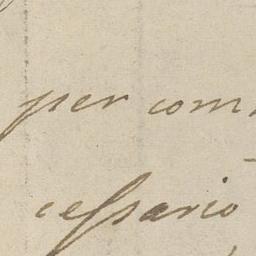 per com
ceſsario